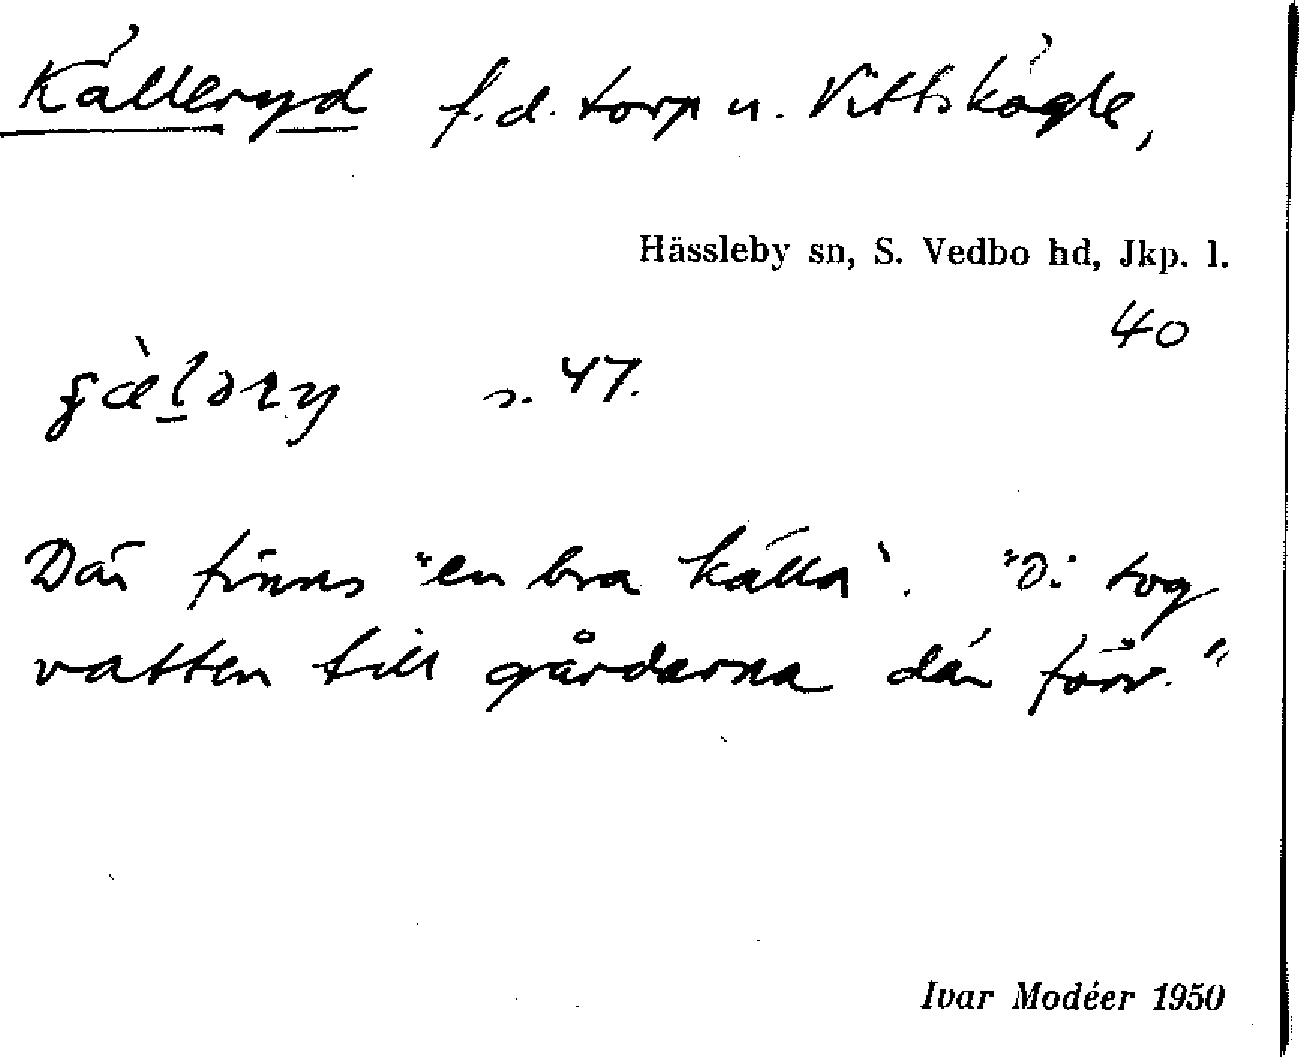 Källeryd f.d. torp u. Vittskögle,
Hässleby sn, S. Vedbo hd, Jkp. l.
40
s. 47.
Där finns "en bra källa". "Di tog
vatten till gårdarna där förr."
Ivar Modéer 1950